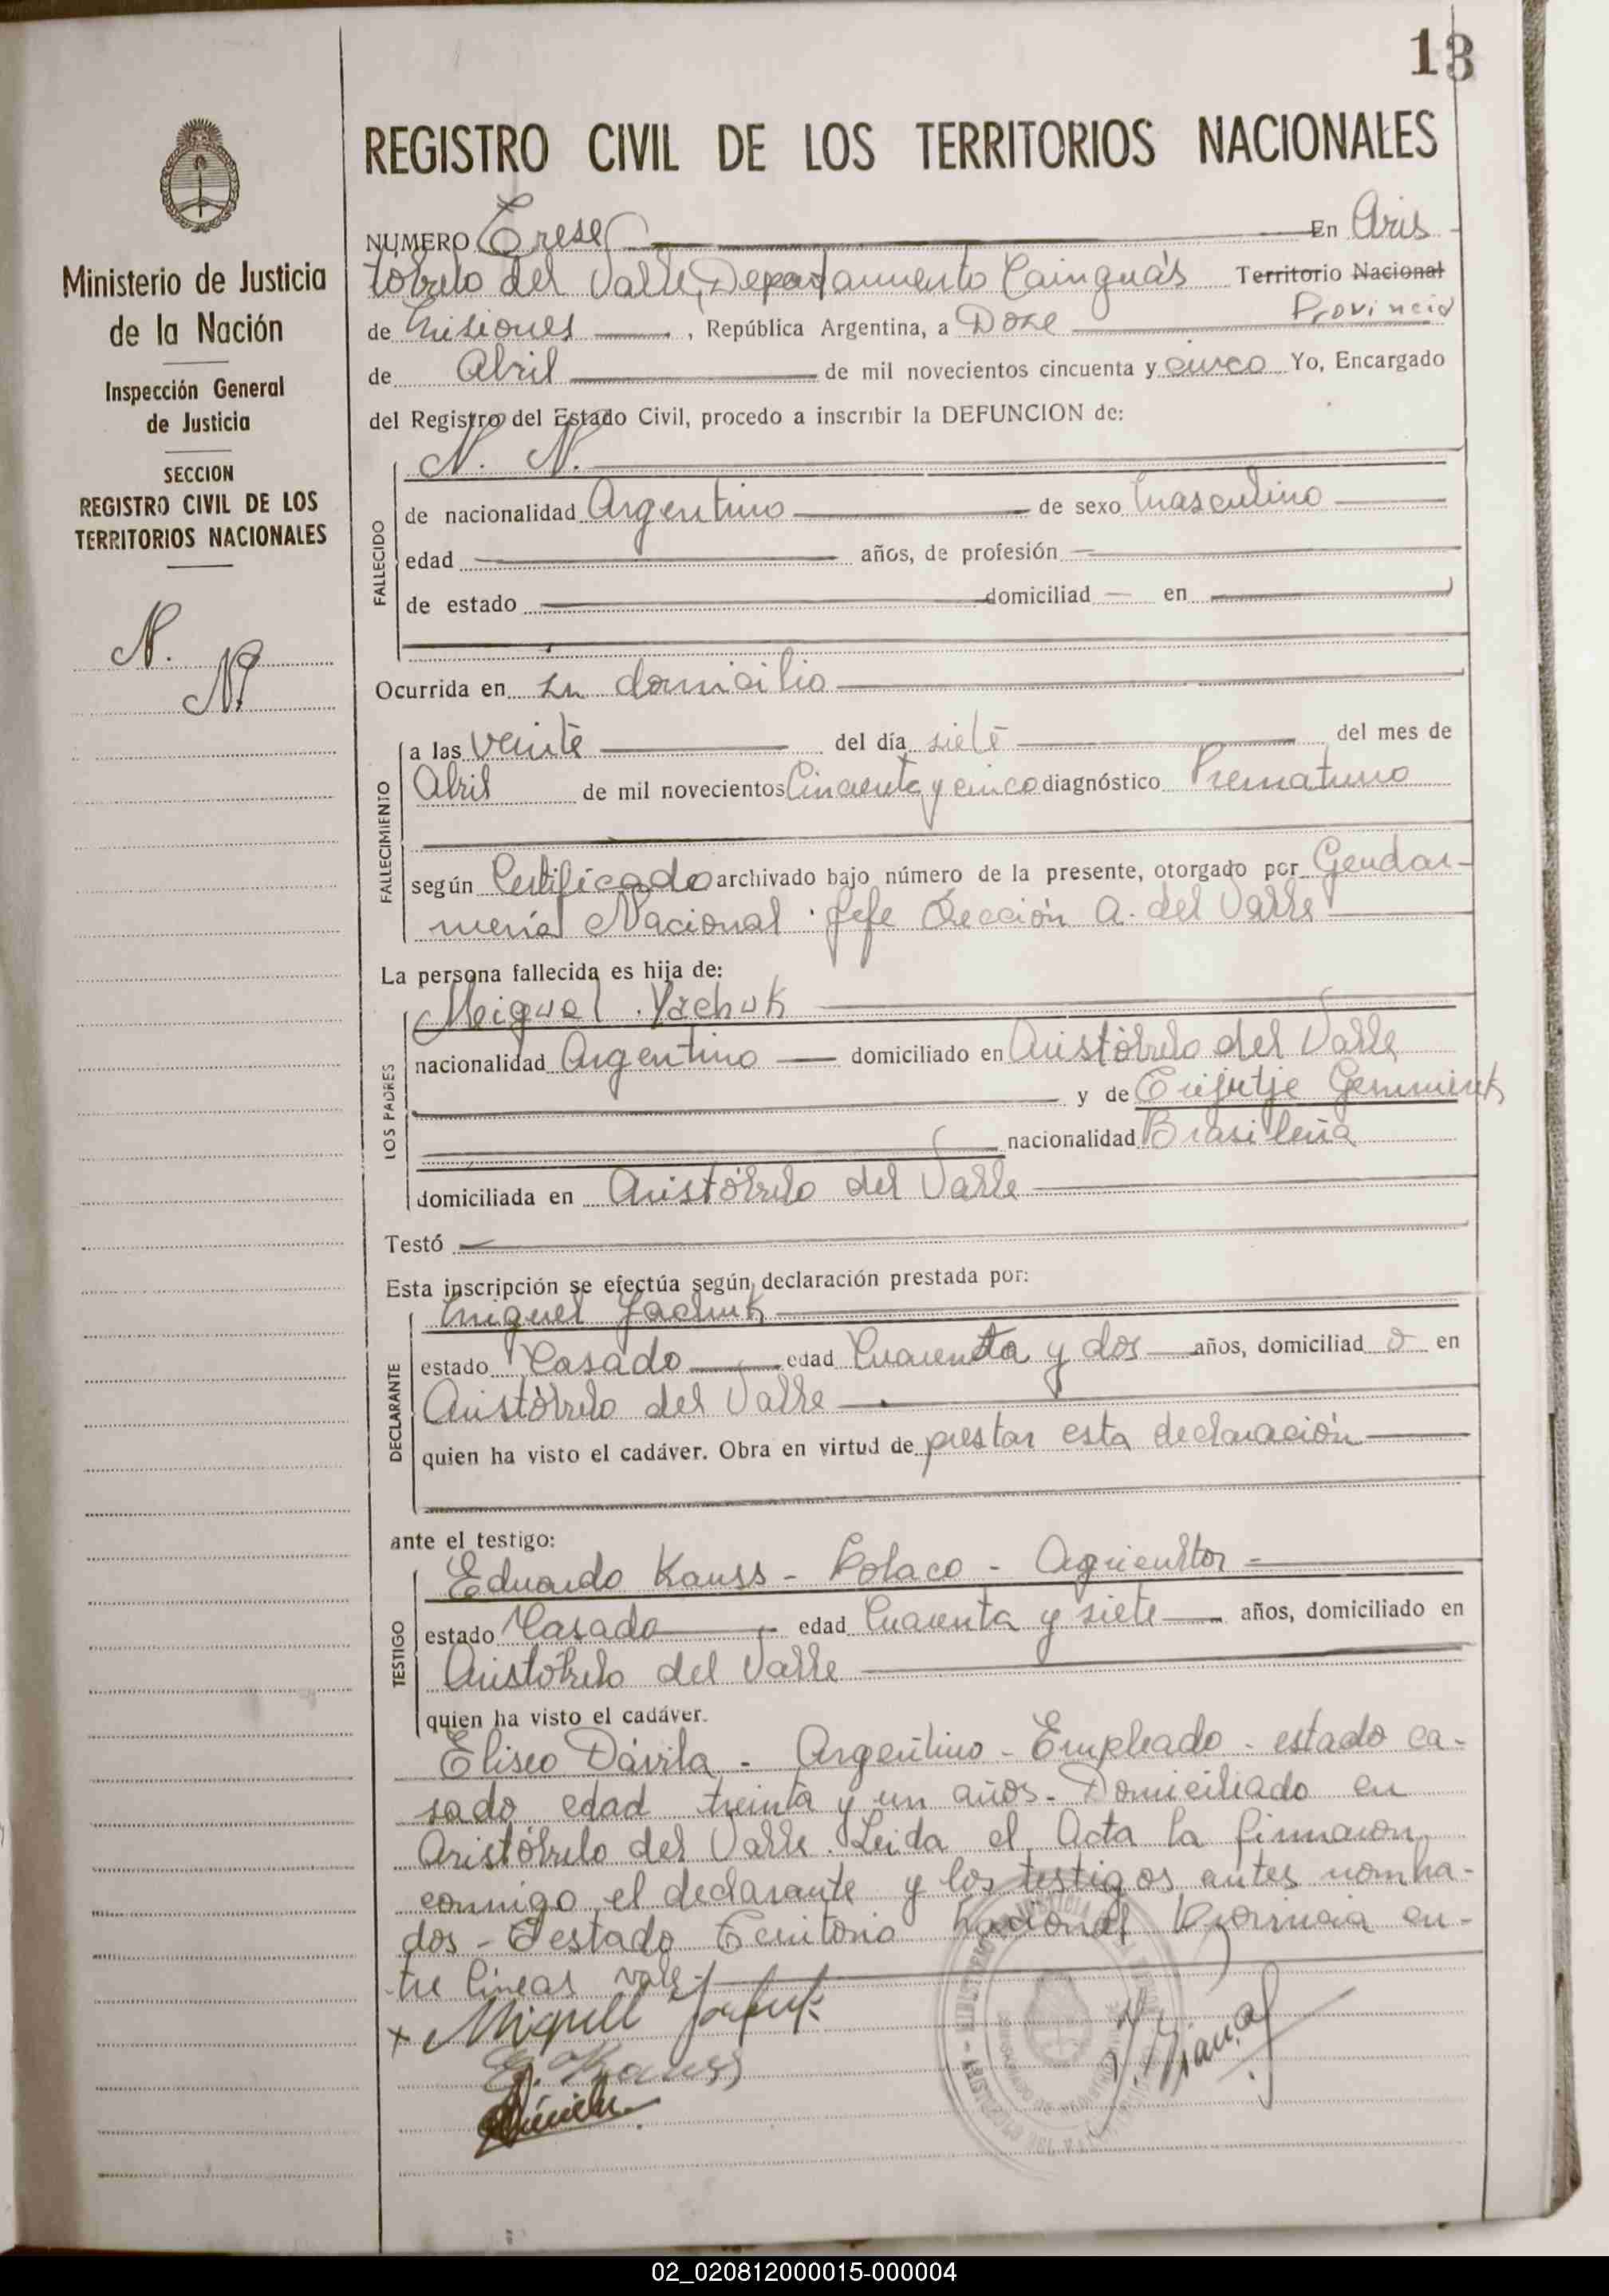 13
REGISTRO CIVIL DE LOS TERRITORIOS NACIONALES
Ministerio de Justicia
de la Nación
Inspección General
de Justicia
SECCION
REGISTRO CIVIL DE LOS
TERRITORIOS NACIONALES
N.
N.
NUMERO Trese En Aris
tóbulo del Valle, Departamento Cainguás Territorio Nacional
Provincia
de Misiones, República Argentina, a Doze
de Abril de mil novecientos cincuenta y cinco Yo, Encargado
del Registro del Estado Civil, procedo a inscribir la DEFUNCION de:
N. N.
FALLECIDO
de nacionalidad Argentino de sexo Masculino
edad años, de profesión
de estado domiciliad en
Ocurrida en su domicilio
FALLECIMIENTO
a las veinte del día siete del mes de
Abril de mil novecientos Cincuenta y cinco diagnóstico Prematuro
según Certificado archivado bajo número de la presente, otorgado por Gendar-
mería Nacional Jefe Sección A. del Valle
La persona fallecida es hija de:
LOS PADRES
Meiguel Yachuk
nacionalidad Argentino domiciliado en Aristóbulo del Valle
y de Gemmink
nacionalidad Brasileña
domiciliada en Aristóbulo del Valle
Testó
Esta inscripción se efectúa según declaración prestada por:
DECLARANTE
Miguel Yachuk
estado Casado edad Cuarenta y dos años, domiciliad o en
Aristóbulo del Valle
quien ha visto el cadáver. Obra en virtud de prestar esta declaración
ante el testigo:
TESTIGO
Eduardo Kauss - Polaco - Agricultor -
estado Casado edad Cuarenta y siete años, domiciliado en
Aristobulo del Valle
quien ha visto el cadáver.
Eliseo Dávila - Argentino - Empleado - estado ca-
sado edad treinta y un años - Domiciliado en
Aristóbulo del Valle. Leida el Acta la firmaron
conmigo el declarante y los testigos antes nomba-
dos - Testado Territorio Nacional Provincia en-
tre líneas vale
x Miguel
E. Kauss
02_020812000015-000004